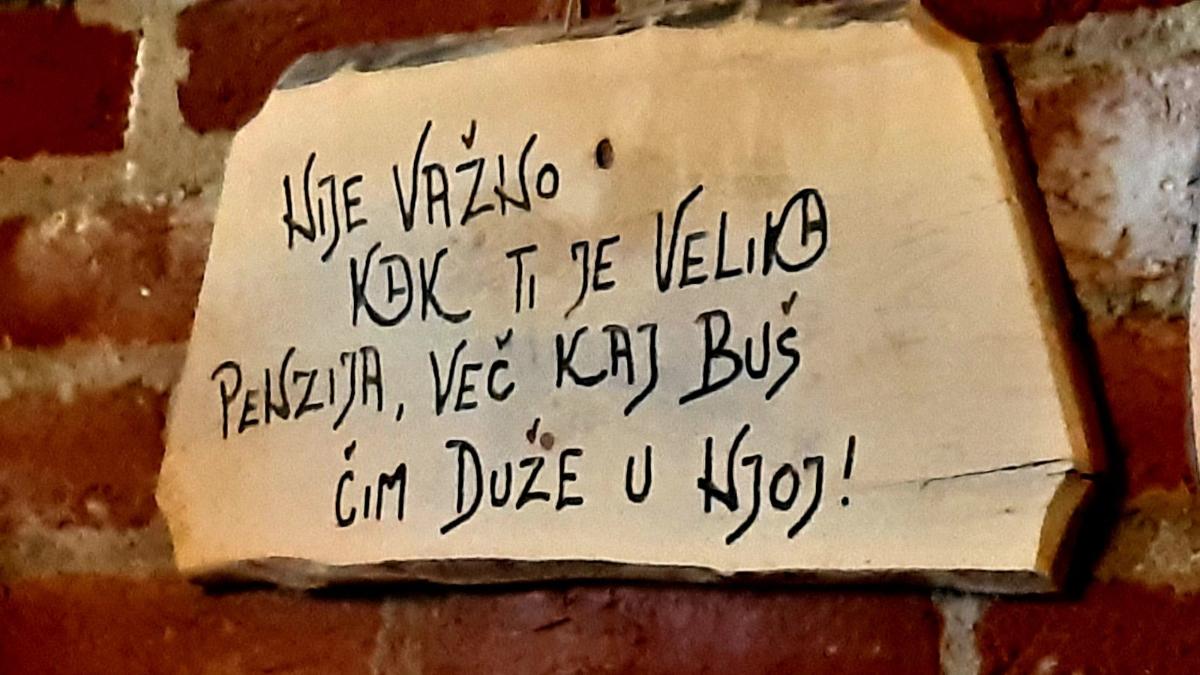 NIJE VAŽNO
KAK TI JE VELIKA
PENZIJA, VEČ KAJ BUŠ
ĆIM DUŽE U NJOJ!